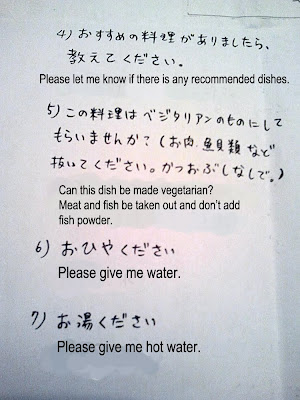 4) おすすめの料理がありましたら、
教えてください。
Please let me know if there is any recommended dishes.
5) この料理はベジタリアンのものにして
もらいませんか？(お肉、魚貝類など
抜いてください。かつおぶしなしで。)
Can this dish be made vegetarian?
Meat and fish be taken out and don't add
fish powder.
6) おひやください
Please give me water.
7) お湯ください
Please give me hot water.